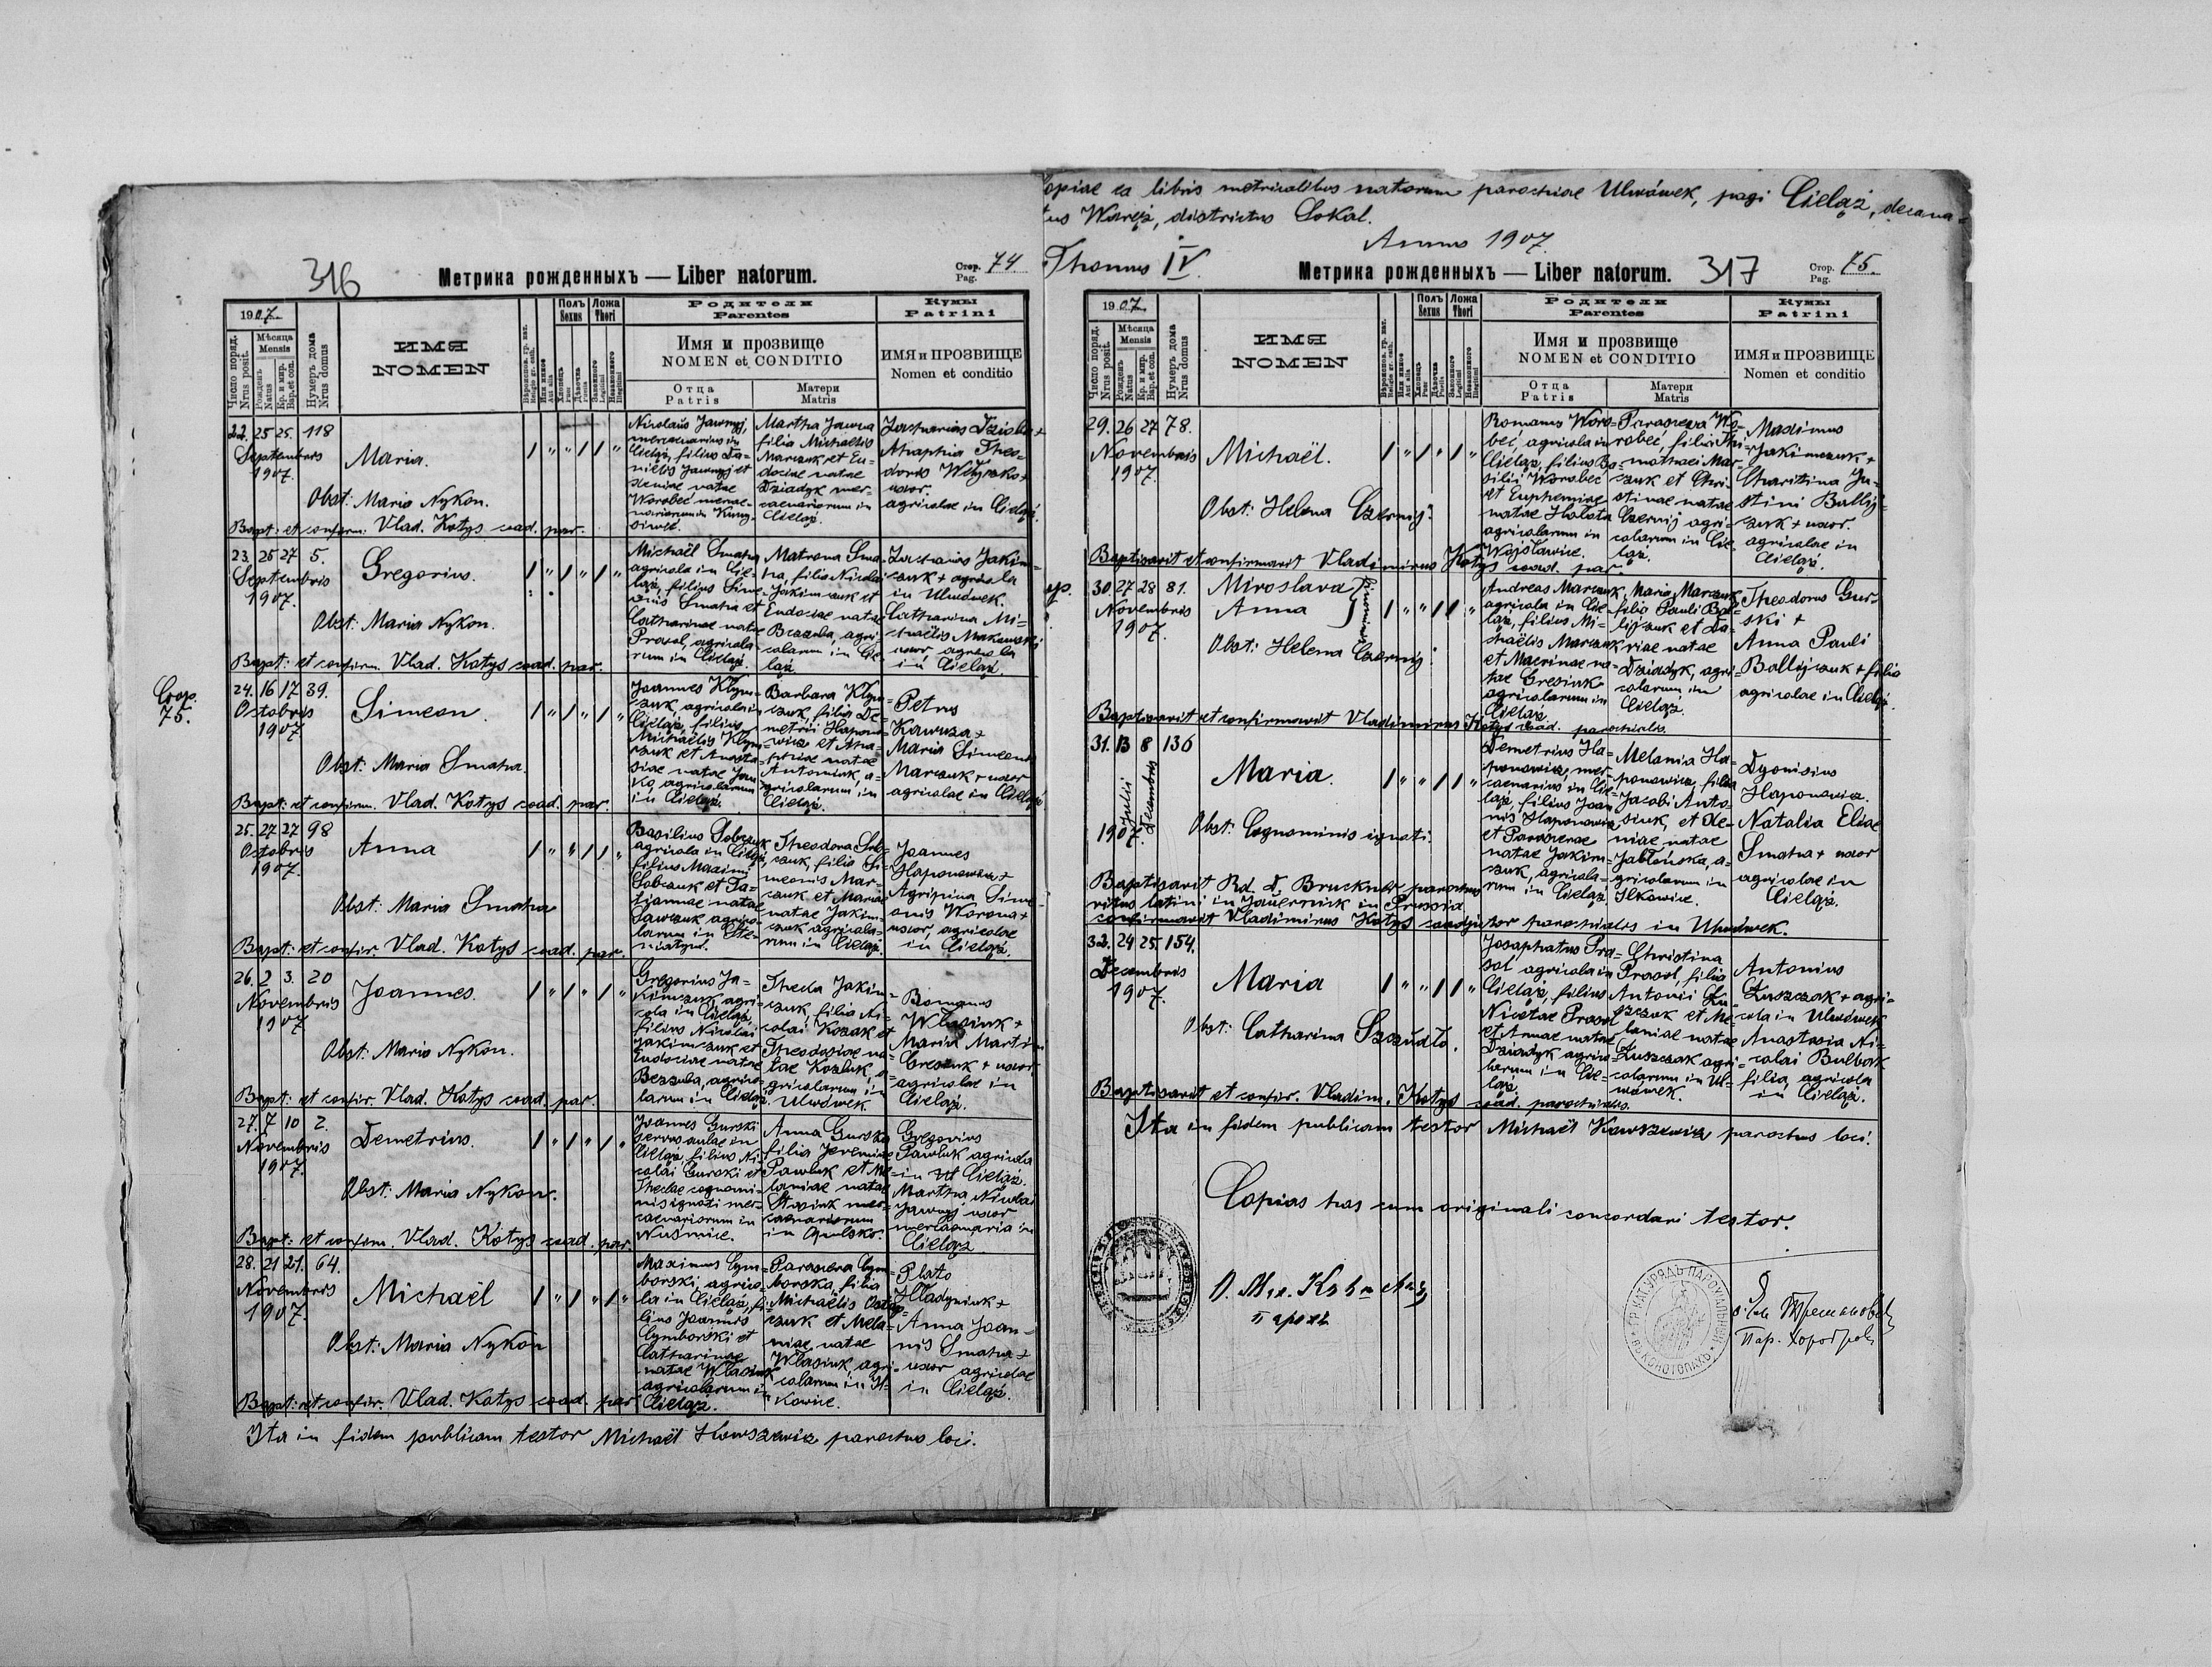 316
Метрика рожденныхъ — Liber natorum.
Стор. Pag. 74
1907
Число поряд. Nrus posit.
Мѣсяца Mensis
Рожденъ Natus
Кр. и мир. Bap. et con.
Нумеръ дома Nrus domus
ИМЯ
NOMEN
Полъ Sexus
Ложа Thori
Родители
Parentes
Имя и прозвище
NOMEN et CONDITIO
Отца Patris
Матери Matris
Кумы
Patrini
ИМЯ и ПРОЗВИЩЕ
Nomen et conditio
22. 25 25. 118
Septembris
1907.
Maria.
Obst: Maria Nykon.
Bapt: et confirm. Vlad. Kotys coad. par.
Nicolaus Jawnyj,
mercenarius in
Cieląż, filius Da=
nielis Jawnyj et
Xeniae natae
Worobeć merce=
nariorum in
Martha Jawna
filia Michaelis
Marczuk et Eu=
dociae natae
Dziadyk mer=
cenariorum in
Cieląż.
Zacharias
Ahaphia Theo=
doris
uxor
agricolae in Cieląż.
23. 25 27 5.
Septembris
1907.
Gregorius.
Obst: Maria Nykon.
Bapt: et confirm. Vlad. Kotys coad. par.
Michaël Smaha
agricola in Cie=
ląż, filius Sime=
onis Smaha et
Catharinae natae
Prasol, agricola=
rum in Cieląż.
Matrona Sma=
ha, filia Nicolai
Jakimczuk et
Eudociae natae
Bezzuba, agri=
colarum in Cie=
ląż.
Zacharias Jakim=
czuk + agricola
in Ulwówek.
Catharina Mi=
chaëlis Makowski
uxor agricola
in Cieląż.
Cop.
75.
24. 16 17 39.
Octobris
1907
Simeon.
Obst: Maria Smaha.
Bapt: et confirm. Vlad. Kotys coad. par.
Joannes Klym=
czuk, agricola in
Cieląż, filius
Michaëlis Klym=
czuk et Anasta=
siae natae Jan=
ko, agricolarum
in Cieląż.
Barbara Klym=
czuk filia De=
metrii Hapono=
wicz et Aha=
phiae natae
Antoniuk, a=
gricolarum in
Cieląż.
Petrus
Kawuza +
Maria Simeonis
Marczuk + uxor
agricolae in Cieląż
25. 27 27 98
Octobris
1907.
Anna
Obst: Maria Smaha
Bapt: et confir. Vlad. Kotys coad. par.
Basilius Sobczuk
agricola in Cieląż,
filius Maximi
Sobczuk et Ta=
tiannae natae
Sawczuk agrico=
larum in Ste=
niatyn.
Theodora Sob=
czuk, filia Si=
meonis Mar=
czuk et Mariae
natae Jakim=
czuk agricola=
rum in Cieląż.
Joannes
Haponowicz +
Agripina Sime=
onis Worona +
uxor, agricolae
in Cieląż.
26. 2 3. 20
Novembris
1907
Joannes.
Obst: Maria Nykon.
Bapt: et confir. Vlad. Kotys coad. par.
Gregorius Ja=
kimczuk agri=
cola in Cieląż,
filius Nicolai
Jakimczuk et
Eudociae natae
Bezzuba, agrico=
larum in Cieląż.
Thecla Jakim=
czuk, filia Ni=
colai Kozak et
Theodosiae na=
tae Kozluk, a=
gricolarum in
Ulwówek.
Romanus
Wlasiuk +
Maria Martini
Gresiuk + uxor
agricolae in
Cieląż.
27. 7 10 2.
Novembris
1907.
Demetrius.
Obst: Maria Nykon.
Bapt: et confirm. Vlad. Kotys coad. par.
Joannes Gurski
servus aulae in
Cieląż, filius Ni=
colai Gurski et
Theclae cognomi=
nis ignoti mer=
cenariorum in
Nusmice.
Anna Gurska
filia Jeremiae
Pawluk et Me=
laniae natae
Stasiuk mer=
cenariorum
in Opulsko.
Gregorius
Pawluk agricola
in Cieląż.
Martha Nicolai
Jawnyj uxor
mercenaria in
Cieląż
28. 21 21. 64.
Novembris
1907.
Michaël
Obst: Maria Nykon
Bapt: et confir. Vlad. Kotys coad. par.
Maximus Cym=
borski, agrico=
la in Cieląż, fi=
lius Joannis
Cymborski et
Catharinae
natae Wlasiuk
agricolarum in
Cieląż.
Parascva Cym=
borska, filia
Michaëlis Ostap=
czuk et Mela=
niae, natae
Wlasiuk, agri=
colarum in Il=
kowice.
Plato
Hladyniuk +
Anna Joan=
nis Smaha +
uxor agricolae
in Cieląż.
Ita in fidem publicam testor Michaël Kowszewicz parochus loci.
Copiae ex libris metricalibus natorum parochiae Ulwówek, pagi Cieląż, decana=
tus Waręż, districtus Sokal.
Anno 1907.
Thomus IV.
Метрика рожденныхъ — Liber natorum.
317
Стор. Pag. 75.
1907
Число поряд. Nrus posit.
Мѣсяца Mensis
Рожденъ Natus
Кр. и мир. Bap. et con.
Нумеръ дома Nrus domus
ИМЯ
NOMEN
Полъ Sexus
Ложа Thori
Родители
Parentes
Имя и прозвище
NOMEN et CONDITIO
Отца Patris
Матери Matris
Кумы
Patrini
ИМЯ и ПРОЗВИЩЕ
Nomen et conditio
29. 26 27 78.
Novembris
1907.
Michaël.
Obst: Helena Czernij.
Baptisavit et confirmavit Vladimirus Kotys coad. par.
Romanus Woro=
beć, agricola in
Cieląż, filius Ba=
silii Worobeć
et Euphemiae
natae Halata
agricolarum in
Wojsławice.
Parasceva Wo=
robeć, filia Thi=
mothaei Mar=
czuk et Chri=
stinae natae
Czernij agri=
colarum in Cie=
ląż.
Maximus
Jakimczuk +
Charitina Ju=
stini Ballij=
czuk + uxor.
agricolae in
Cieląż.
30. 27 28 81.
Novembris
1907
Miroslava
Anna
Obst: Helena Czernij.
Baptisavit et confirmavit Vladimirus Kotys coad. parochialis.
Andreas Marczuk,
agricola in Cie=
ląż, filius Mi=
chaëlis Marczuk
et Macrinae na=
tae Gresiuk
agricolarum in
Cieląż.
Maria Marczuk
filia Pauli Bal=
lijczuk et Da=
riae natae
Dziadyk, agri=
colarum in
Cieląż.
Theodorus Gur=
ski +
Anna Pauli
Ballijczuk + filia
agricolae in Cieląż.
31. 13 8 136
Julii
Decembris
1907.
Maria.
Obst: Cognominis ignoti.
Baptisavit Rd. D. Bruckner parochus
ritus latini in Jauernick in Prussia
confirmavit Vladimirus Kotys coadjutor parochialis in Ulwówek.
Demetrius Ha=
ponowicz, mer=
cenarius in Cie=
ląż, filius Joan=
nis Haponowicz
et Parascevae
natae Jakim=
czuk, agricola=
rum in Cieląż
Melania Ha=
ponowicz, filia
Jacobi Anto=
siuk, et Xe=
niae natae
Jabłońska, a=
gricolarum in
Ilkowice.
Dyonisius
Haponowicz.
Natalia Eliae
Smaha + uxor
agricolae in
Cieląż.
32. 24 25. 154.
Decembris
1907.
Maria
Obst: Catharina Szozudło.
Baptisavit et confir. Vladim. Kotys coad. parochialis.
Josaphatus Pra=
sol, agricola in
Cieląż, filius
Nicetae Prasol
et Annae natae
Dziadyk agrico=
larum in Cie=
ląż.
Christina
Prasol, filia
Antonii Łu=
szczak et Me=
laniae natae
Łuszczak agri=
colarum in Ul=
wówek.
Antonius
Łuszczak + agri=
cola in Ulwówek
Anastasia Ni=
colai Bulbak
filia, agricola
in Cieląż.
Ita in fidem publicam testor Michaël Kowszewicz parochus loci.
Copias has cum originali concordari testor.
парох
ГР. КАТ. УРЯДЪ ПАРОХІАЛЬНЫЙ ВЪ КОНОТОПАХЪ